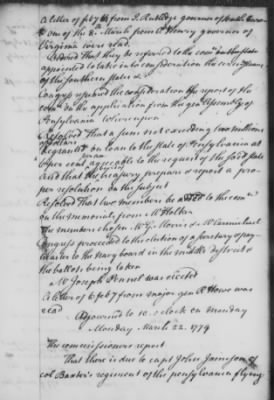 A letter of feby 6 from J. Rutledge governor of south Caro
& one of the 8. March from P Henry governor of
Virginia were read.
Ordered that they be referred to the
appointed to take into consideration the
of the southern states &
Congress resumed the consideration of the report of the
on the application from the gen Assembly of
Pensylvania Whereupon
Resolved That a sum not exceeding two millions
of dollars on loan to the state of Pensylvania at
6 per cent agreeable to the request of the said state
And that the treasury prepare & report a pro
per resolution on the subject
Resolved That two members be added to the com
on the memorial from Mr Holker
The members chosen Mr G Morris &
Congress proceeded to the election of a secretary & pay
master to the navy board in the middle district &
the ballots being taken
Mr Joseph Pennel was elected
A letter of feby from major gen R Howe was
read
Adjourned to 10 o Clock on Monday
Monday March 22. 1779
The commissioners report
That there is due to capt John Jamison of
col Baxter's regiment of the pensylvania flying